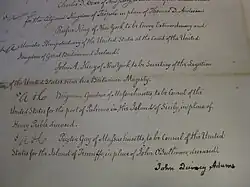 for the Kingdom of Sweden, in place of
Rufus King of New York to be Envoy Extraordinary and
Minister Plenipotentiary of the United States at the Court of the United
Kingdom of Great Britain and Ireland.
John A. King, of New York, to be Secretary of the Legation
of the United States near his Britannic Majesty.
Benjamin Gardner of Massachusetts to be Consul of the
United States for the port of Palermo in the Island of Sicily, in place of
Henry deceased.
Payton Gay of Massachusetts to be Consul of the United
States for the Island of Teneriffe, in place of John deceased.
John Quincy Adams